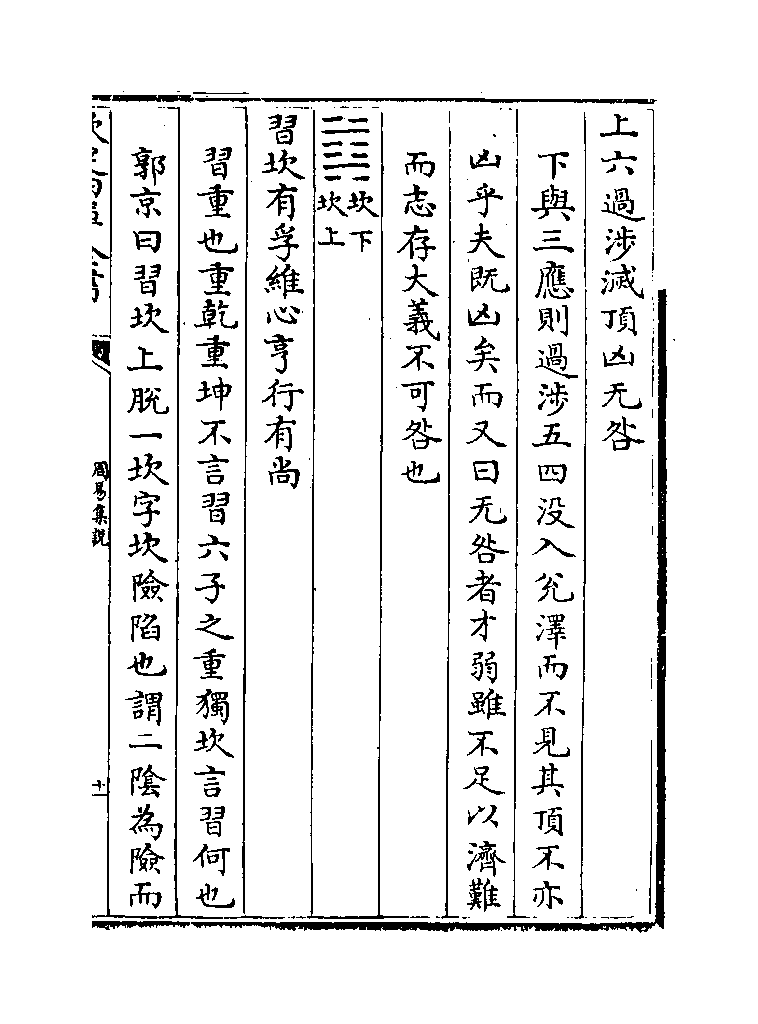 上六過涉滅頂凶无咎
下與三應則過涉五四没入兊澤而不見其頂不亦
凶乎夫既凶矣而又曰无咎者才弱雖不足以濟難
而志存大義不可咎也
坎下
坎上
習坎有孚維心亨行有尚
習重也重乾重坤不言習六子之重獨坎言習何也
郭京曰習坎上脫一坎字坎險陷也謂二陰為險而
周易集說
十一